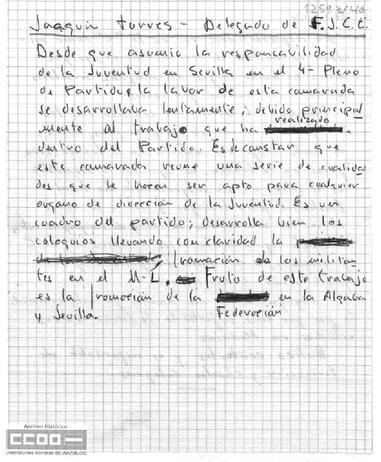 12593/40
Joaquin Torres - Delegado de F.J.C.E.
Desde que asumio la responcabilidad
de la Juventud en Sevilla en el 4º Pleno
de Partido; la lavor de esta camarada
se desarrollaba lentamente; debido principal
mente al trabajo que ha realizado
dentro del Partido. Es de constar que
este camarada reune una serie de cualida
des que le haran ser apto para cualquier
organo de direccion de la Juventud. Es un
cuadro del partido; desarrolla bien los
coloquios llevando con claridad la
promacion de los milita
tes en el M-L. Fruto de este trabajo
es la promocion de la en la Algaba
y Sevilla. Federación
Archivo Histórico
CCOO
comisiones obreras de Andalucía